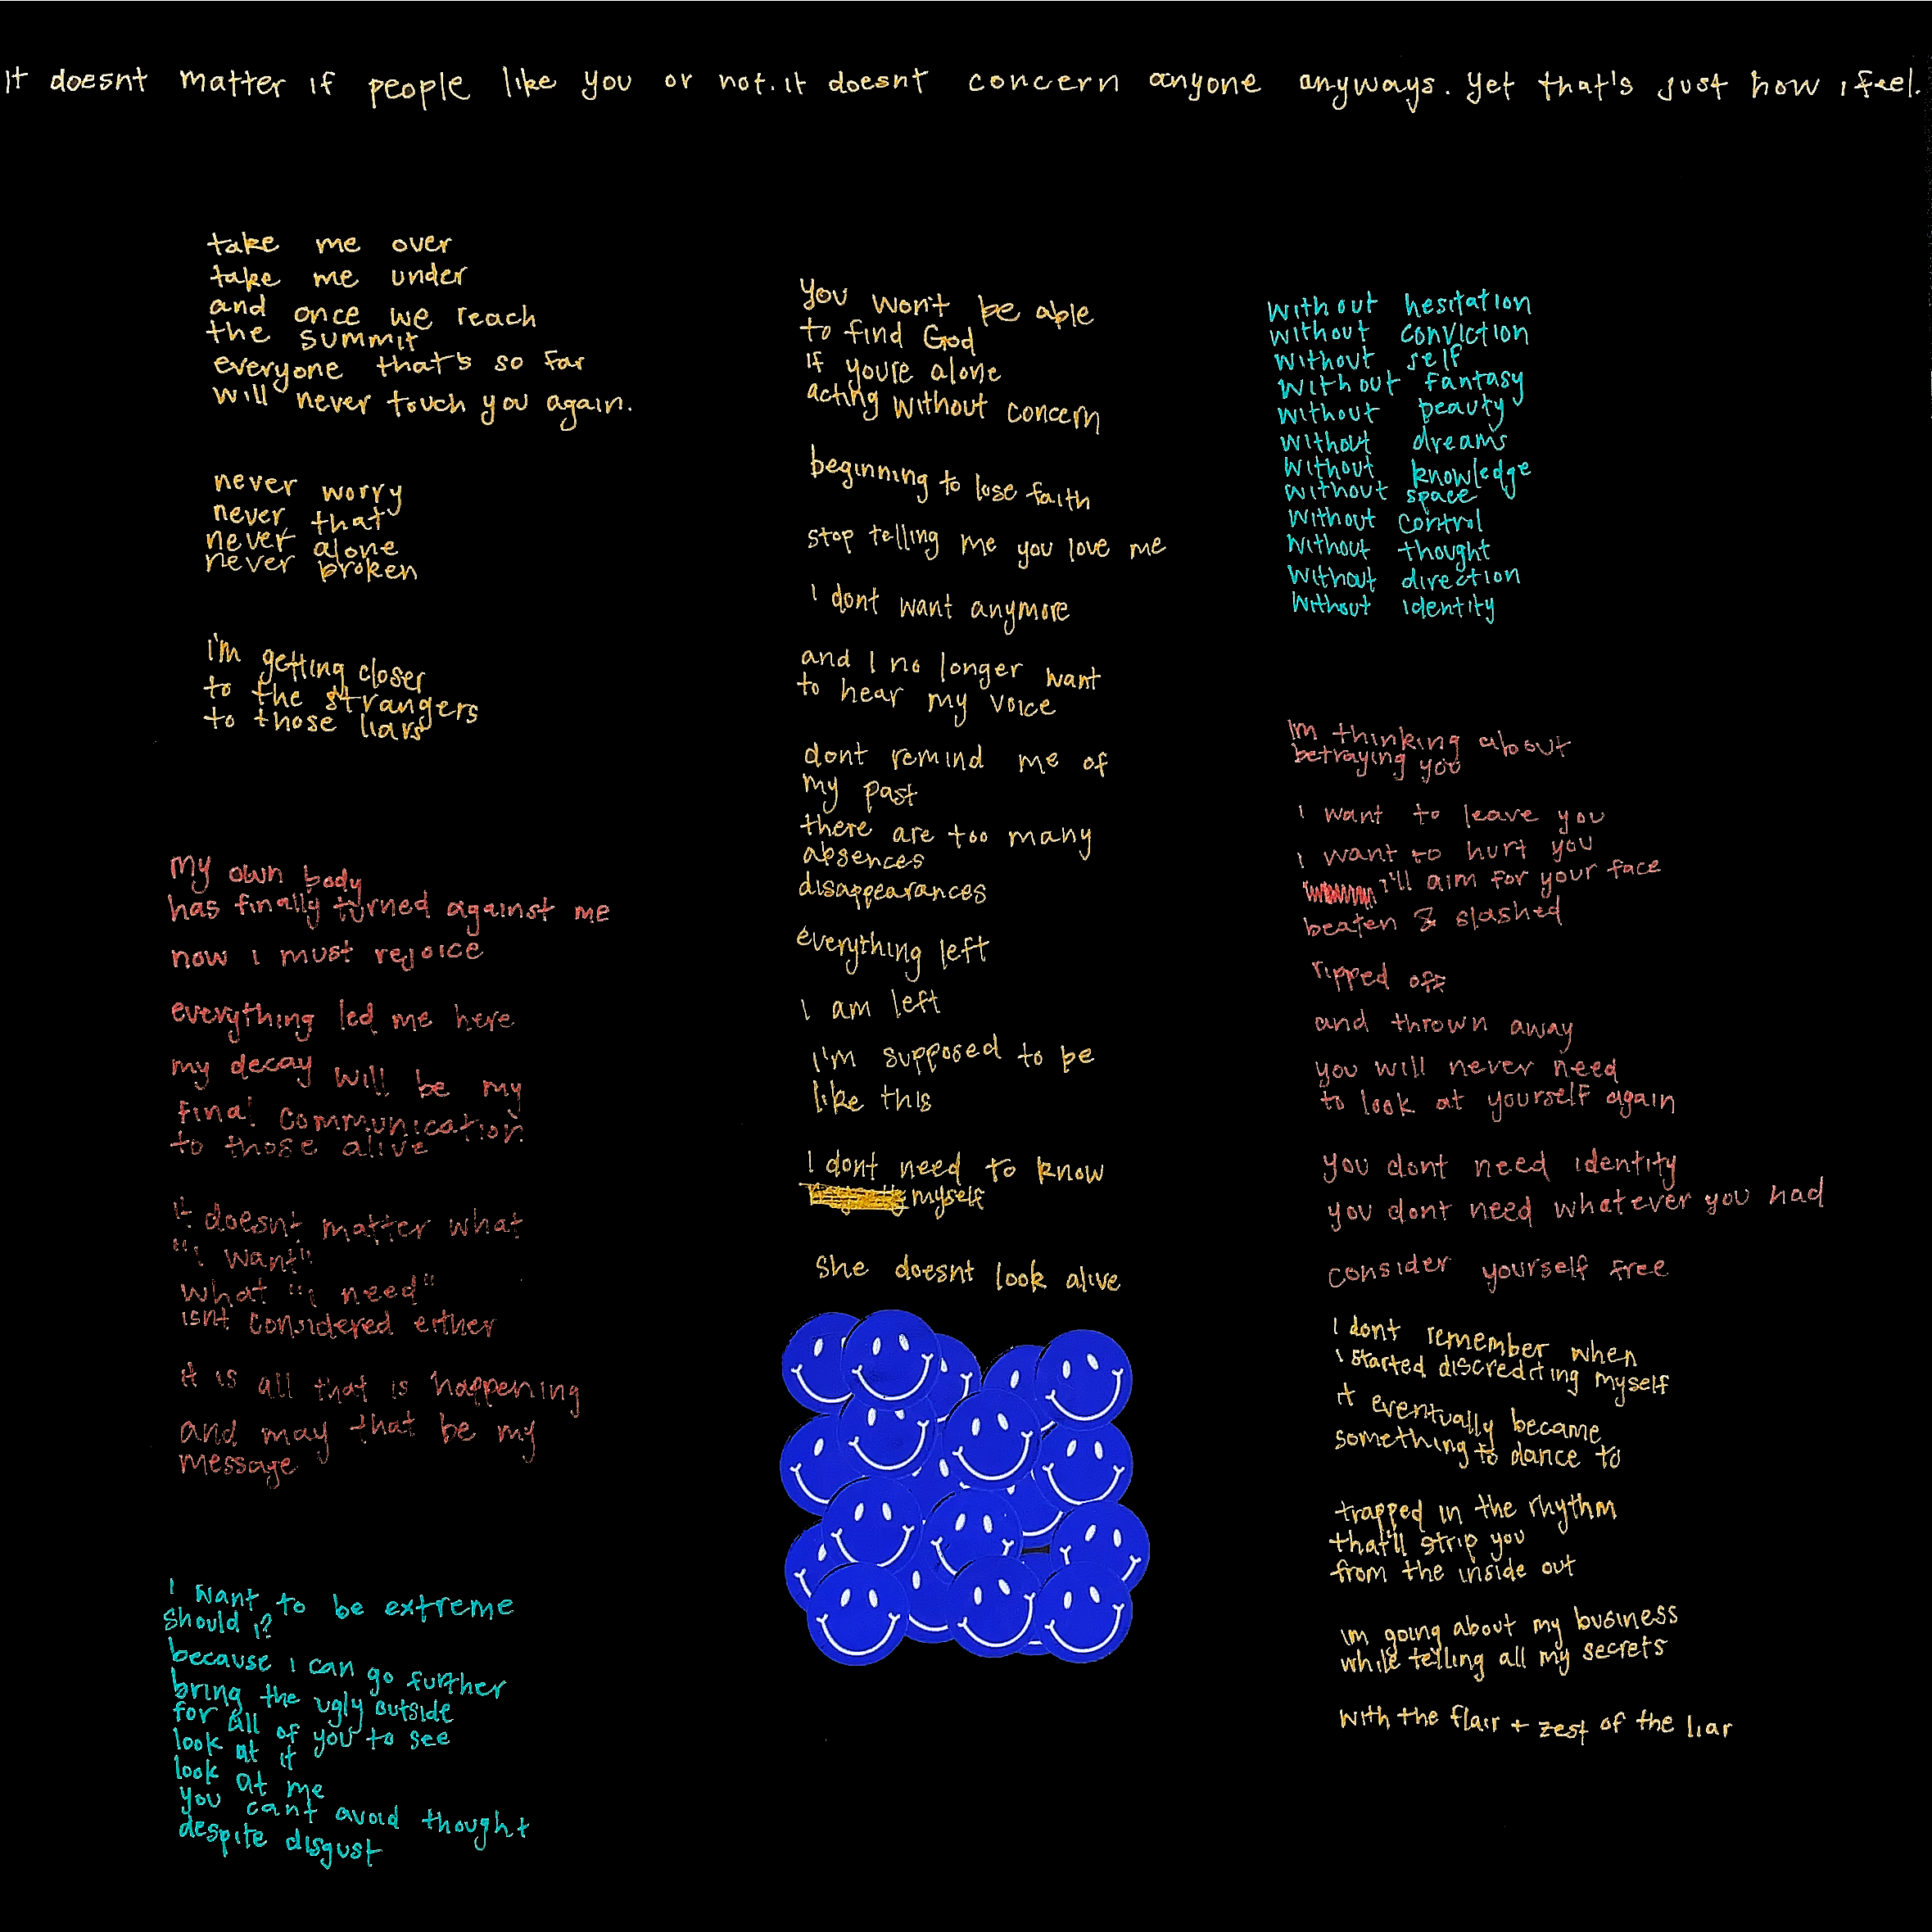 It doesnt matter if people like you or not. it doesnt concern anyone anyways. yet that's just how i feel.
take me over
take me under
and once we reach
the summit
everyone that's so far
will never touch you again.
never worry
never that
never alone
never broken
i'm getting closer
to the strangers
to those liars
my own body
has finally turned against me
now i must rejoice
everything led me here
my decay will be my
final communication
to those alive
it doesnt matter what
"i want"
what "i need"
isnt considered either
it is all that is happening
and may that be my
message
I want to be extreme
should i?
because i can go further
bring the ugly outside
for all of you to see
look at it
look at me
you cant avoid thought
despite disgust
you won't be able
to find God
if you're alone
acting without concern
beginning to lose faith
stop telling me you love me
I dont want anymore
and I no longer want
to hear my voice
dont remind me of
my past
there are too many
absences
disappearances
everything left
I am left
I'm supposed to be
like this
I dont need to know
myself
She doesnt look alive
without hesitation
without conviction
without self
without fantasy
without beauty
without dreams
without knowledge
without space
without control
without thought
without direction
without identity
Im thinking about
betraying you
I want to leave you
I want to hurt you
i'll aim for your face
beaten & slashed
ripped off
and thrown away
you will never need
to look at yourself again
you dont need identity
you dont need whatever you had
consider yourself free
I dont remember when
i started discrediting myself
it eventually became
something to dance to
trapped in the rhythm
that'll strip you
from the inside out
im going about my business
while telling all my secrets
with the flair + zest of the liar